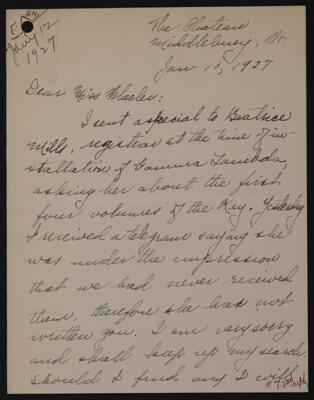 Jan'y 12
1927
The Chateau
Middlebury, Vt.
Jan 10, 1927
Dear Miss
I sent a special to Beatrice
Mills, registrar at the time of in-
stallation of Gamma Lambda,
asking her about the first
four volumes of the Key. Yesterday
I received a telegram saying she
was under the impression
that we had never received
them, therefore she has not
written you. I am very sorry
and shall keep up my search
should I find any I will